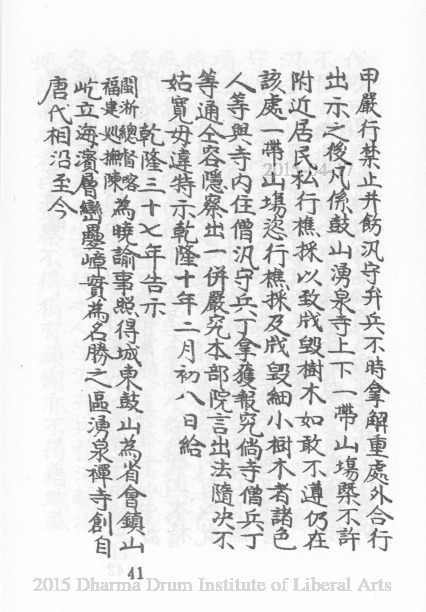 甲嚴行禁止并飭汛守弁兵不時拿解重處外合行
出示之後凡係鼓山湧泉寺上下一帶山塲槩不許
附近居民私行樵採以致戕毀樹木如敢不遵仍在
該處一帶山塲恣行樵採及戕毀細小樹木者諸色
人等與寺內住僧汛守兵丁拿獲報究倘寺僧兵丁
等通仝容隱察出一併嚴究本部院言出法隨决不
姑寬毋違特示乾隆十年二月初八日給
乾隆三十七年告示
閩浙總督喀
福建廵撫陳
為曉諭事照得城東鼓山為省會鎮山
屹立海濱層巒疊嶂實為名勝之區湧泉禪寺創自
唐代相沿至今
41
2015 Dharma Drum Institute of Liberal Arts